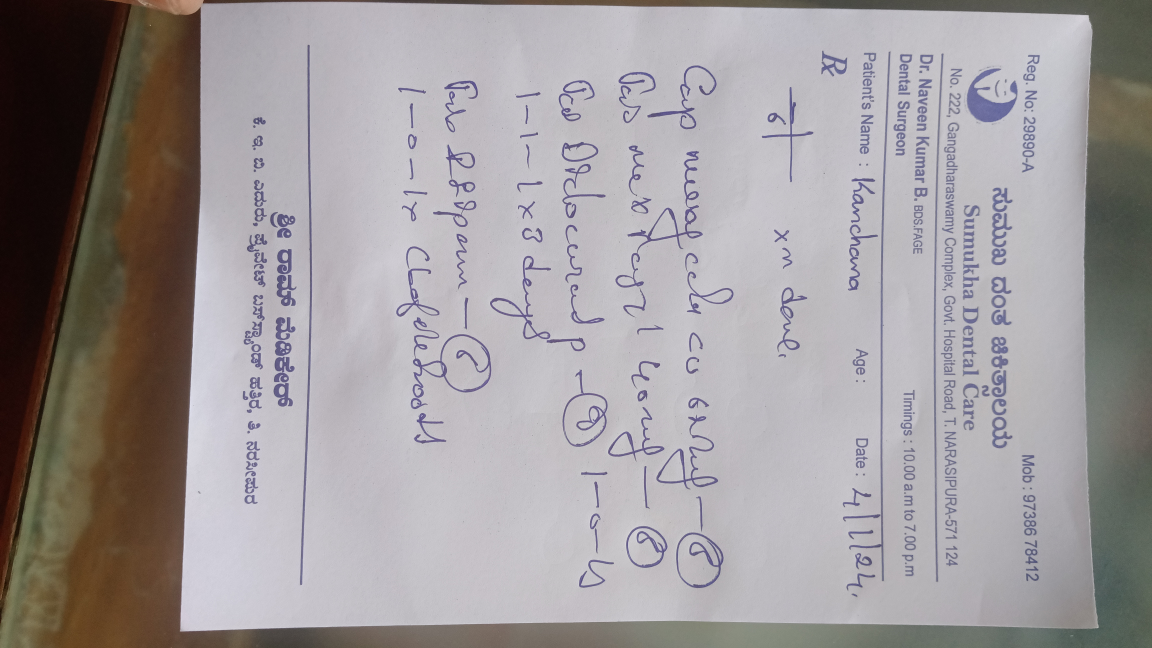 Reg. No: 29890-A Mob : 97386 78412
ಸುಮುಖ ದಂತ ಚಿಕಿತ್ಸಾಲಯ
Sumukha Dental Care
No. 222, Gangadharaswamy Complex, Govt. Hospital Road, T. NARASIPURA-571 124
Dr. Naveen Kumar B. BDS.FAGE
Dental Surgeon Timings : 10.00 a.m to 7.00 p.m
Patient's Name : Kanchana Age : Date : 4/1/24.
Rx
6 xn done.
Cap
Tab 400mg - 8
Tab p - 9 1-0-1
1-1-1 x 3 days
Tab - 6
1-0-1 x
ಶ್ರೀ ರಾಮ್ ಮೆಡಿಕೇರ್
ಕೆ. ಇ. ಬಿ. ಎದುರು, ಪ್ರೈವೇಟ್ ಬಸ್‌ಸ್ಟ್ಯಾಂಡ್ ಹತ್ತಿರ, ತಿ. ನರಸೀಪುರ